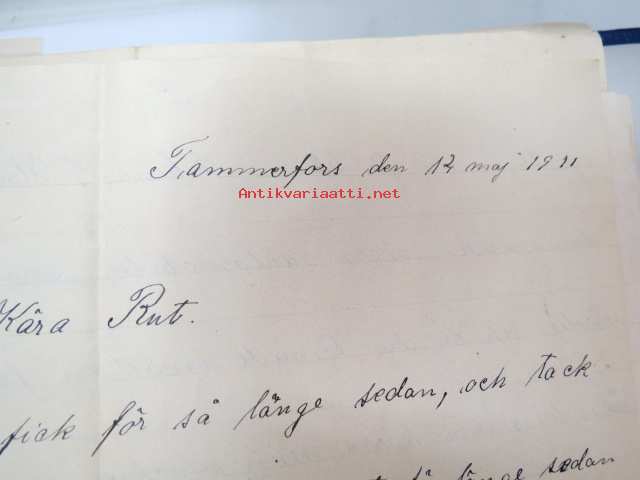 Tammerfors den 12 maj 1911
Antikvariaatti.net
Kära Rut.
fick för så länge sedan, och tack
så länge sedan